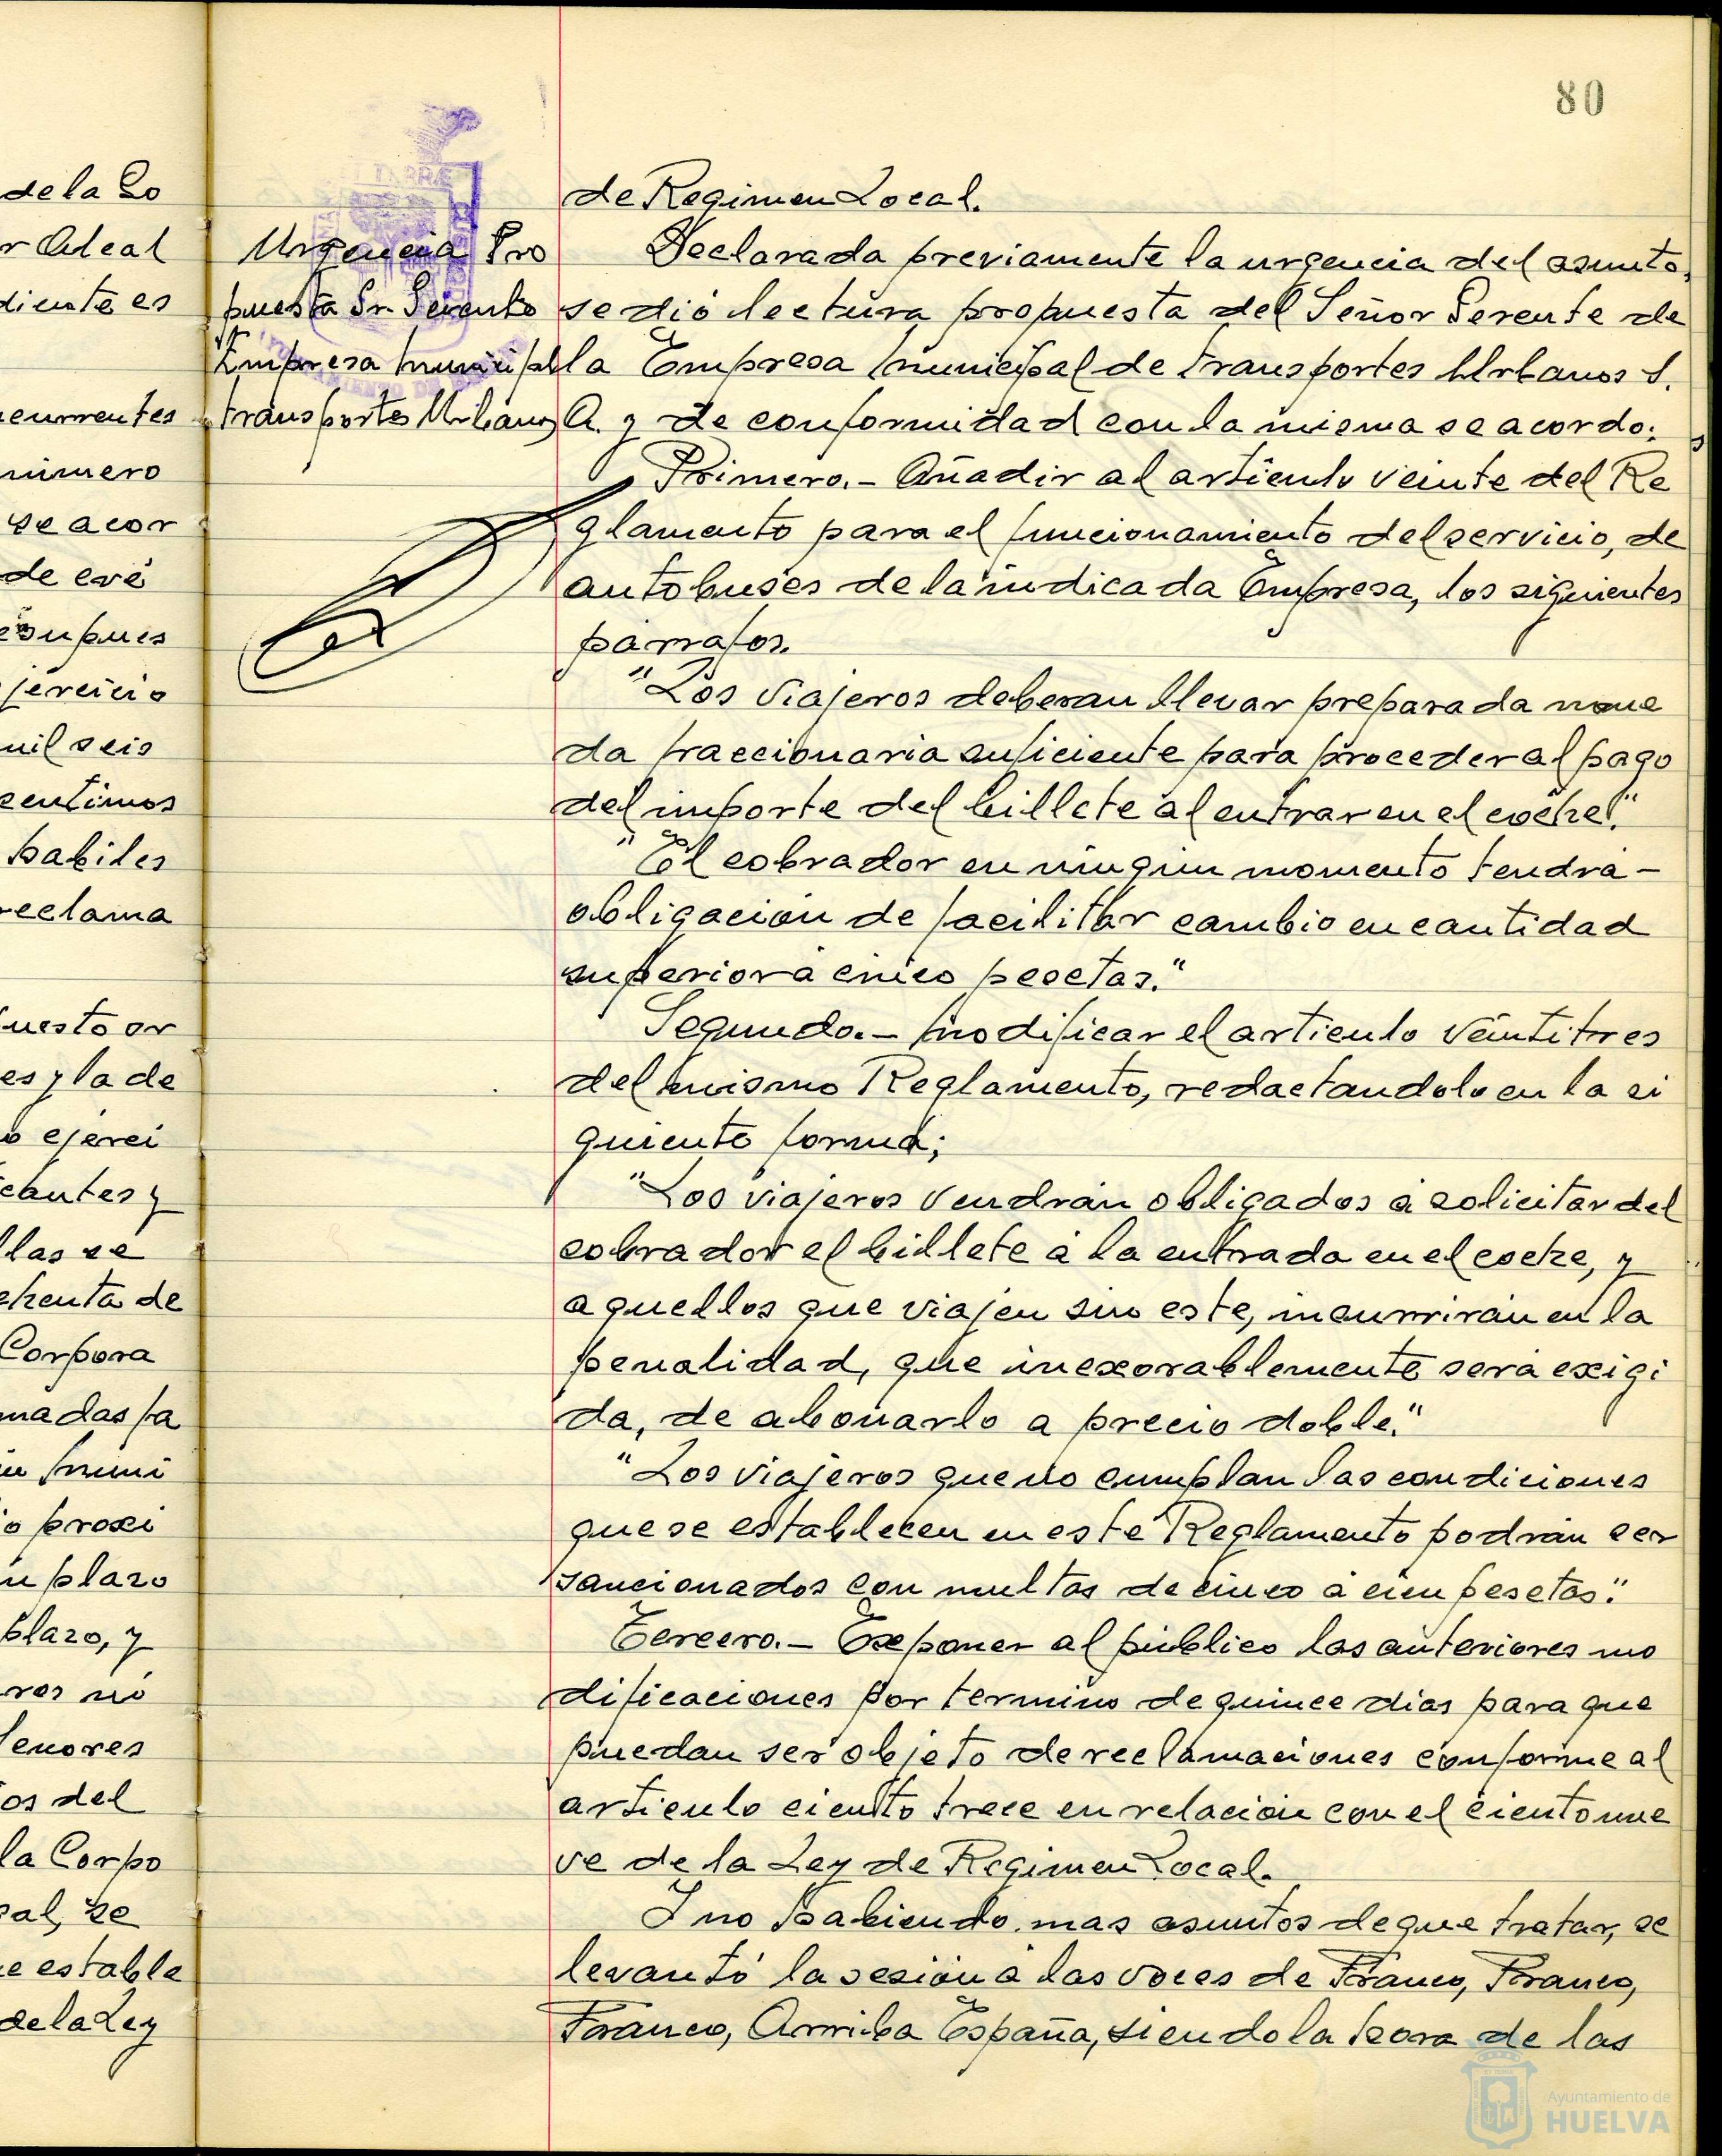 80
de la Go
r Alcal
diente es
currentes
número
se acor
de eve
esupues
jercicio
mil seis
centimos
habiles
reclama
uesto or
es y la de
o ejerci
cantes y
llas se
chenta de
Corpora
madas fa
in Muni
o proxi
n plazo
plazo, y
ros nó
Senores
os del
la Corpo
al, se
e estable
de la Ley
Urgencia Pro
puesta Sr. Gerente
Empresa Municipal
transportes Urbanos
de Regimen Local.
Declarada previamente la urgencia del asunto,
se dió lectura propuesta del Señor Gerente de
la Empresa Municipal de transportes Urbanos S.
A. y de conformidad con la misma se acordo:
Primero.- Añadir al articulo veinte del Re
glamento para el funcionamiento del servicio, de
autobuses de la indicada Empresa, los siguientes
párrafos.
"Los viajeros deberan llevar preparada mone
da fraccionaria suficiente para proceder al pago
del importe del billete al entrar en el coche."
"El cobrador en ningun momento tendrá -
obligación de facilitar cambio en cantidad
superior a cinco pesetas."
Segundo.- Modificar el articulo veintitres
del mismo Reglamento, redactandolo en la si
guiente forma;
"Los viajeros vendrán obligados á solicitar del
cobrador el billete a la entrada en el coche, y
aquellos que viajen sin este, incurrirán en la
penalidad, que inexorablemente será exigi
da, de abonarlo a precio doble."
"Los viajeros que no cumplan las condiciones
que se establecen en este Reglamento podrán ser
sancionados con multas de cinco á cien pesetas."
Tercero.- Exponer al público las anteriores mo
dificaciones por termino de quince dias para que
puedan ser objeto de reclamaciones conforme al
articulo ciento trece en relación con el ciento nue
ve de la Ley de Regimen Local.
Y no habiendo mas asuntos de que tratar, se
levantó la sesión á las voces de Franco, Franco,
Franco, Arriba España, siendo la hora de las
Ayuntamiento de
HUELVA